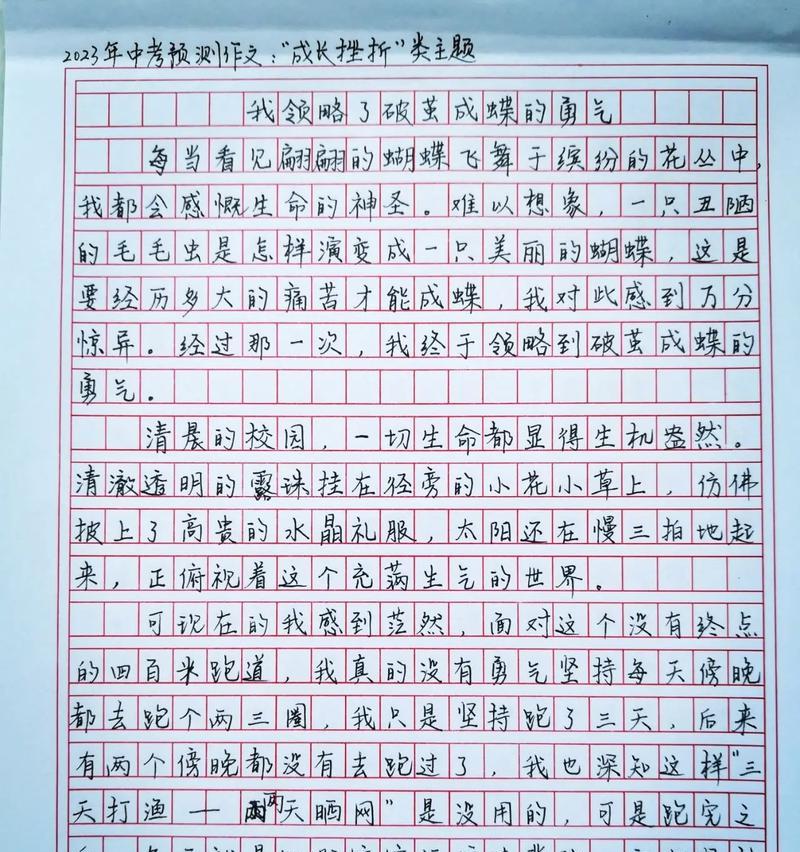 2023年中考预测作文:"成长挫折"类主题
我领略了破茧成蝶的勇气
每当看见翩翩的蝴蝶飞舞于缤纷的花丛中,
我都会感慨生命的神圣。难以想象,一只丑陋
的毛毛虫是怎样演变成一只美丽的蝴蝶,这是
要经历多大的痛苦才能成蝶,我对此感到万分
惊异。经过那一次,我终于领略到破茧成蝶的
勇气。
清晨的校园,一切生命都显得生机盎然。
清澈透明的露珠挂在径旁的小花小草上,仿佛
披上了高贵的水晶礼服,太阳还在慢三拍地起
来,正俯视着这个充满生气的世界。
可现在的我感到茫然,面对这个没有终点
的四百米跑道,我真的没有勇气坚持每天傍晚
都去跑个两三圈,我只是坚持跑了三天,后来
有两个傍晚都没有去跑过了,我也深知这样"三
天打渔—两天晒网"是没用的,可是跑完之